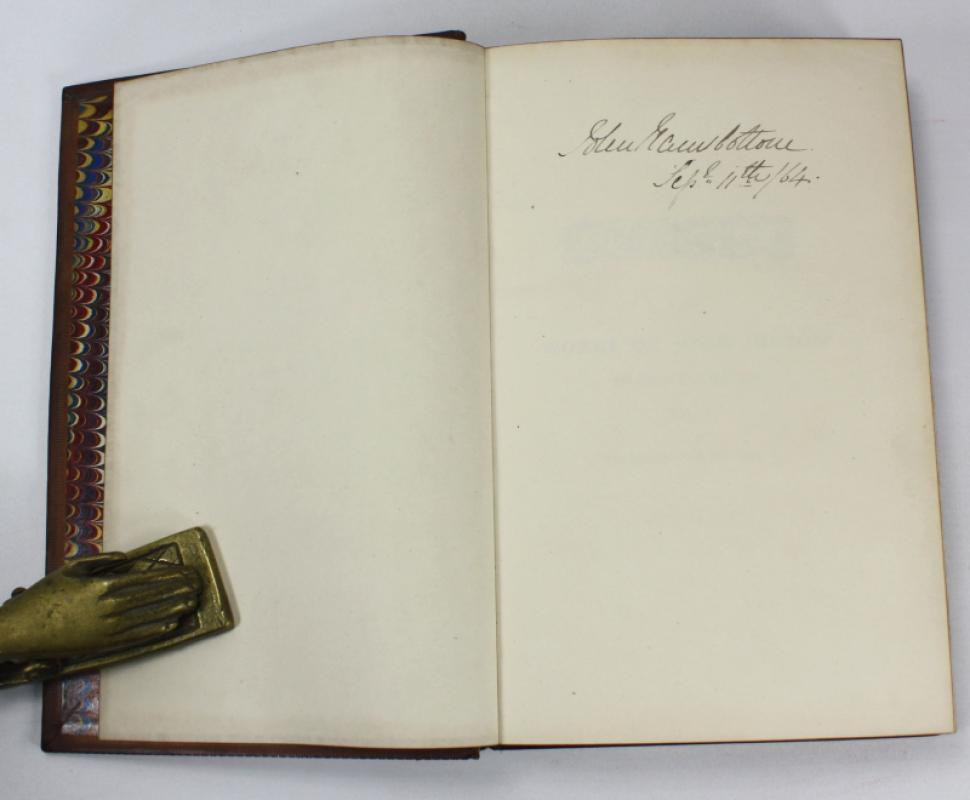 John Ramsbottom.
Sep.r 11th /64.